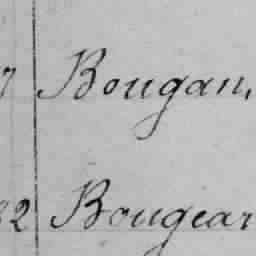 7 Bougan,
82 Bougear